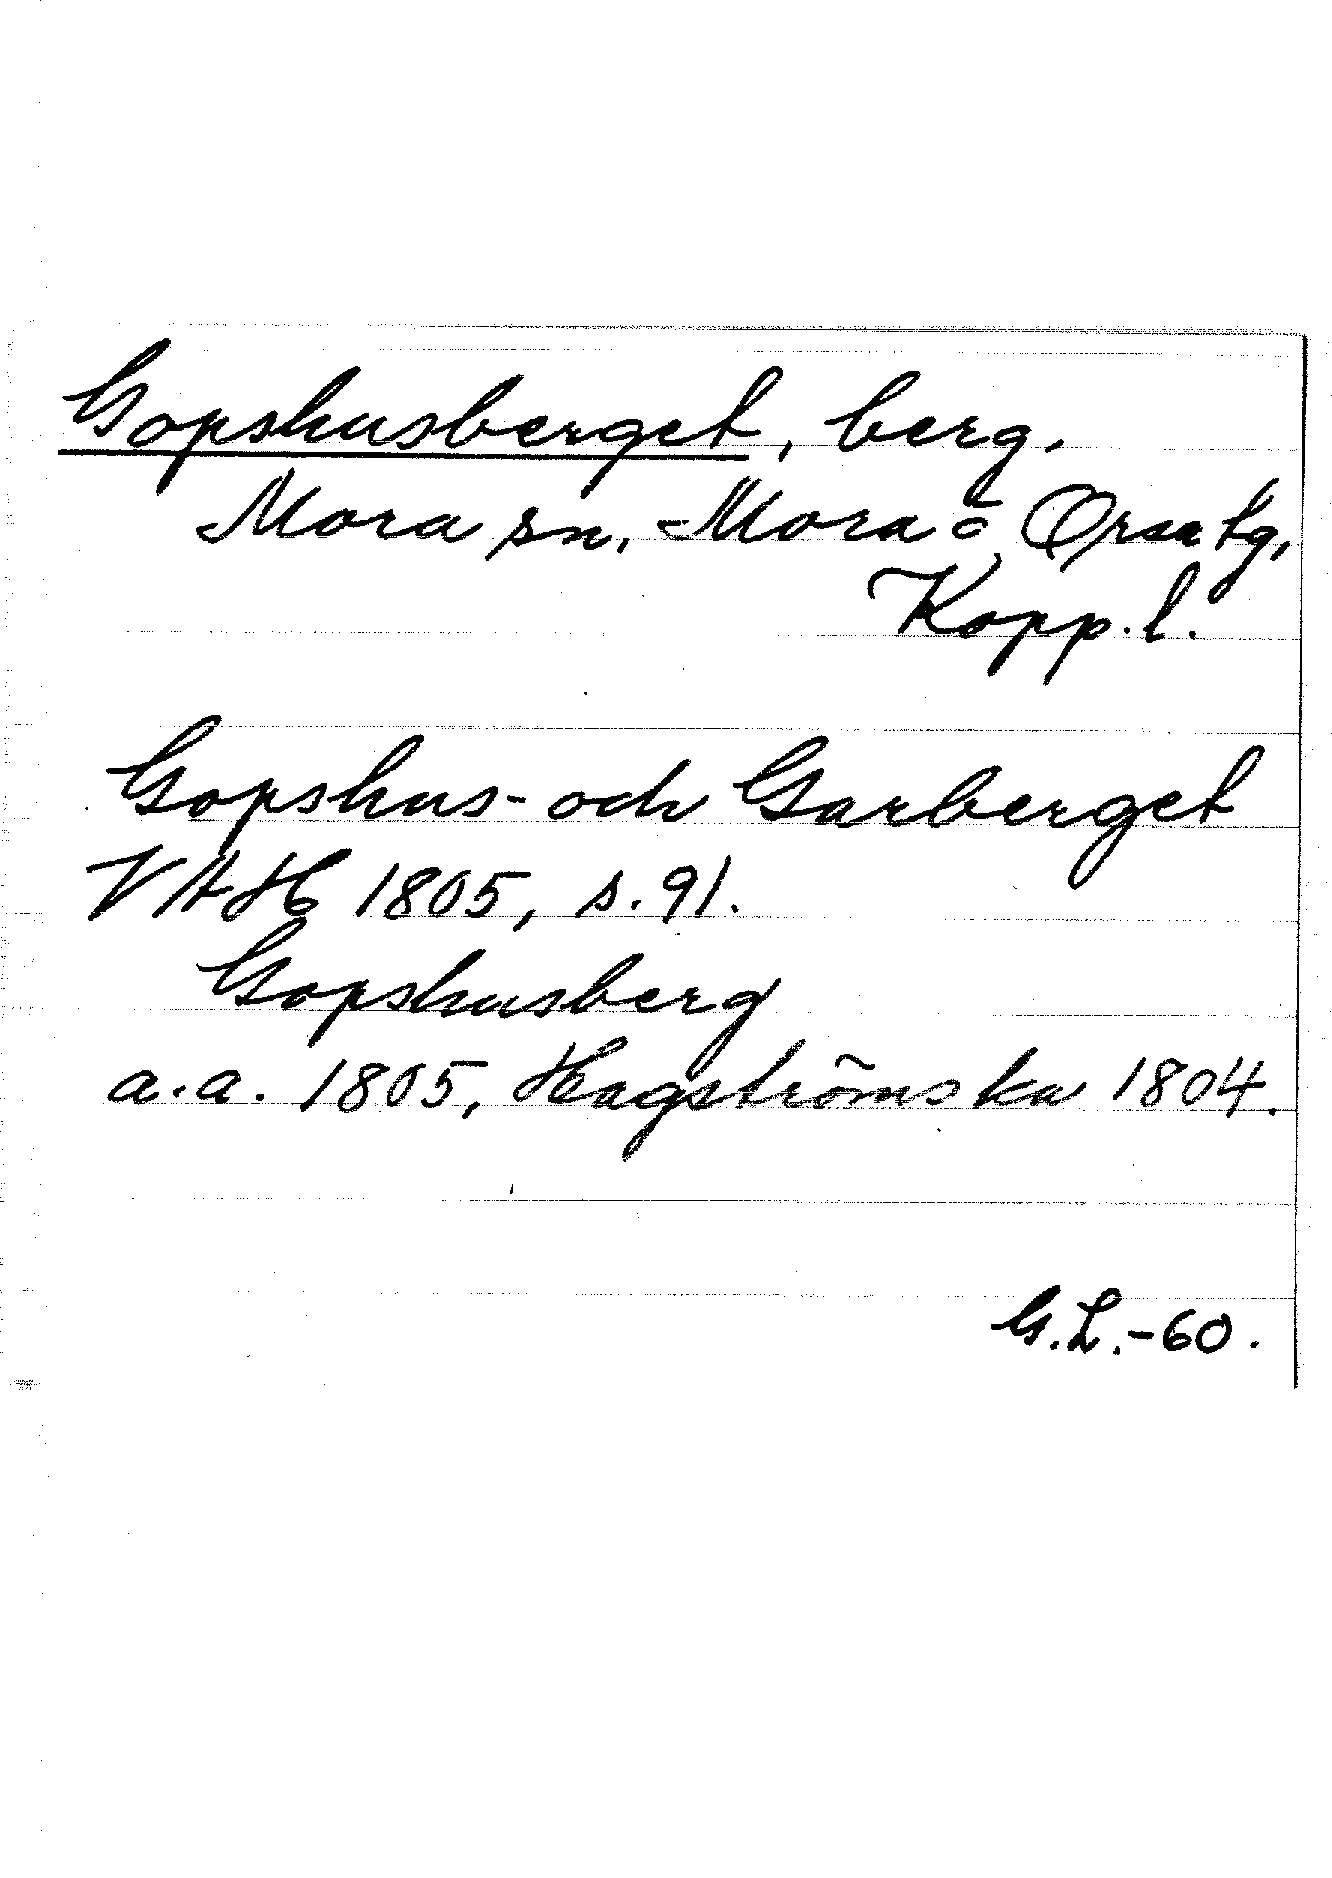 Gopshusberget, berg.
Mora sn, Mora o Orsa tg,
Kopp. l.
Gopshus- och Garberget
VAH 1805, s. 91.
Gopshusberg
a.a. 1805, Hagströmska 1804.
G.L.-60.